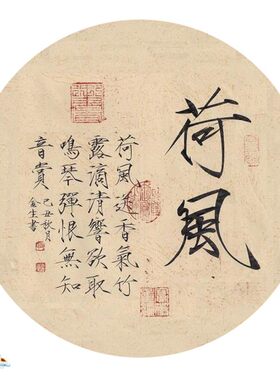 荷風
荷風送香氣竹
露滴清響欲取
鳴琴彈恨無知
音賞
己丑秋月